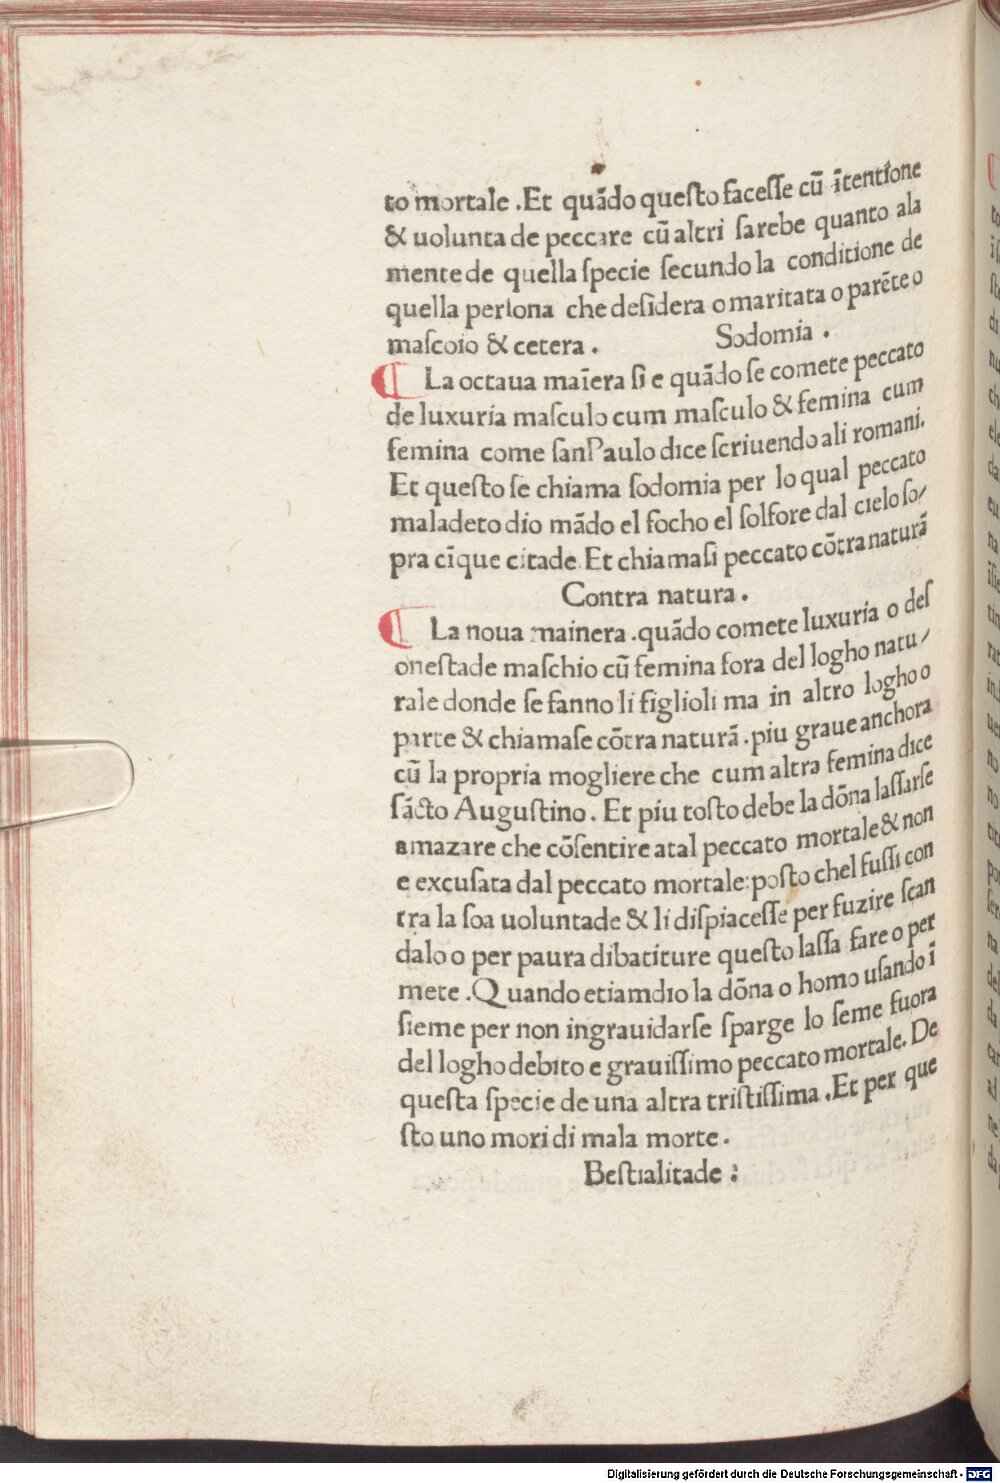 to mortale .Et quãdo queſto faceſſe cũ ĩtentione
& uolunta de peccare cũ altri ſarebe quanto ala
mente de quella ſpecie ſecundo la conditione de
quella perſona che deſidera o maritata o parẽte o
maſcoio & cetera . Sodomia .
La octaua maĩera ſi e quãdo ſe comete peccato
de luxuria maſculo cum maſculo & femina cum
femina come ſan Paulo dice ſcriuendo ali romani.
Et queſto ſe chiama ſodomia per lo qual peccato
maladeto dio mãdo el focho el ſolfore dal cielo ſo/
pra cĩque citade Et chiamaſi peccato cõtra naturã
Contra natura .
La noua mainera .quãdo comete luxuria o deſ
oneſtade maſchio cũ femina fora del logho natu/
rale donde ſe fanno li figlioli ma in altro logho o
parte & chiamaſe cõtra naturã .piu graue anchora
cũ la propria mogliere che cum altra femina dice
ſãcto Auguſtino . Et piu toſto debe la dõna laſſarſe
amazare che cõſentire atal peccato mortale & non
e excuſata dal peccato mortale: poſto chel fuſſi con
tra la ſoa uoluntade & li diſpiaceſſe per fuzire ſcan
dalo o per paura dibatiture queſto laſſa fare o per
mete .Quando etiamdio la dõna o homo uſando ĩ
ſieme per non ingrauidarſe ſparge lo ſeme fuora
del logho debito e grauiſſimo peccato mortale. De
queſta ſpecie de una altra triſtiſſima .Et per que
ſto uno mori di mala morte .
Beſtialitade :
Digitalisierung gefördert durch die Deutsche Forschungsgemeinschaft - DFG